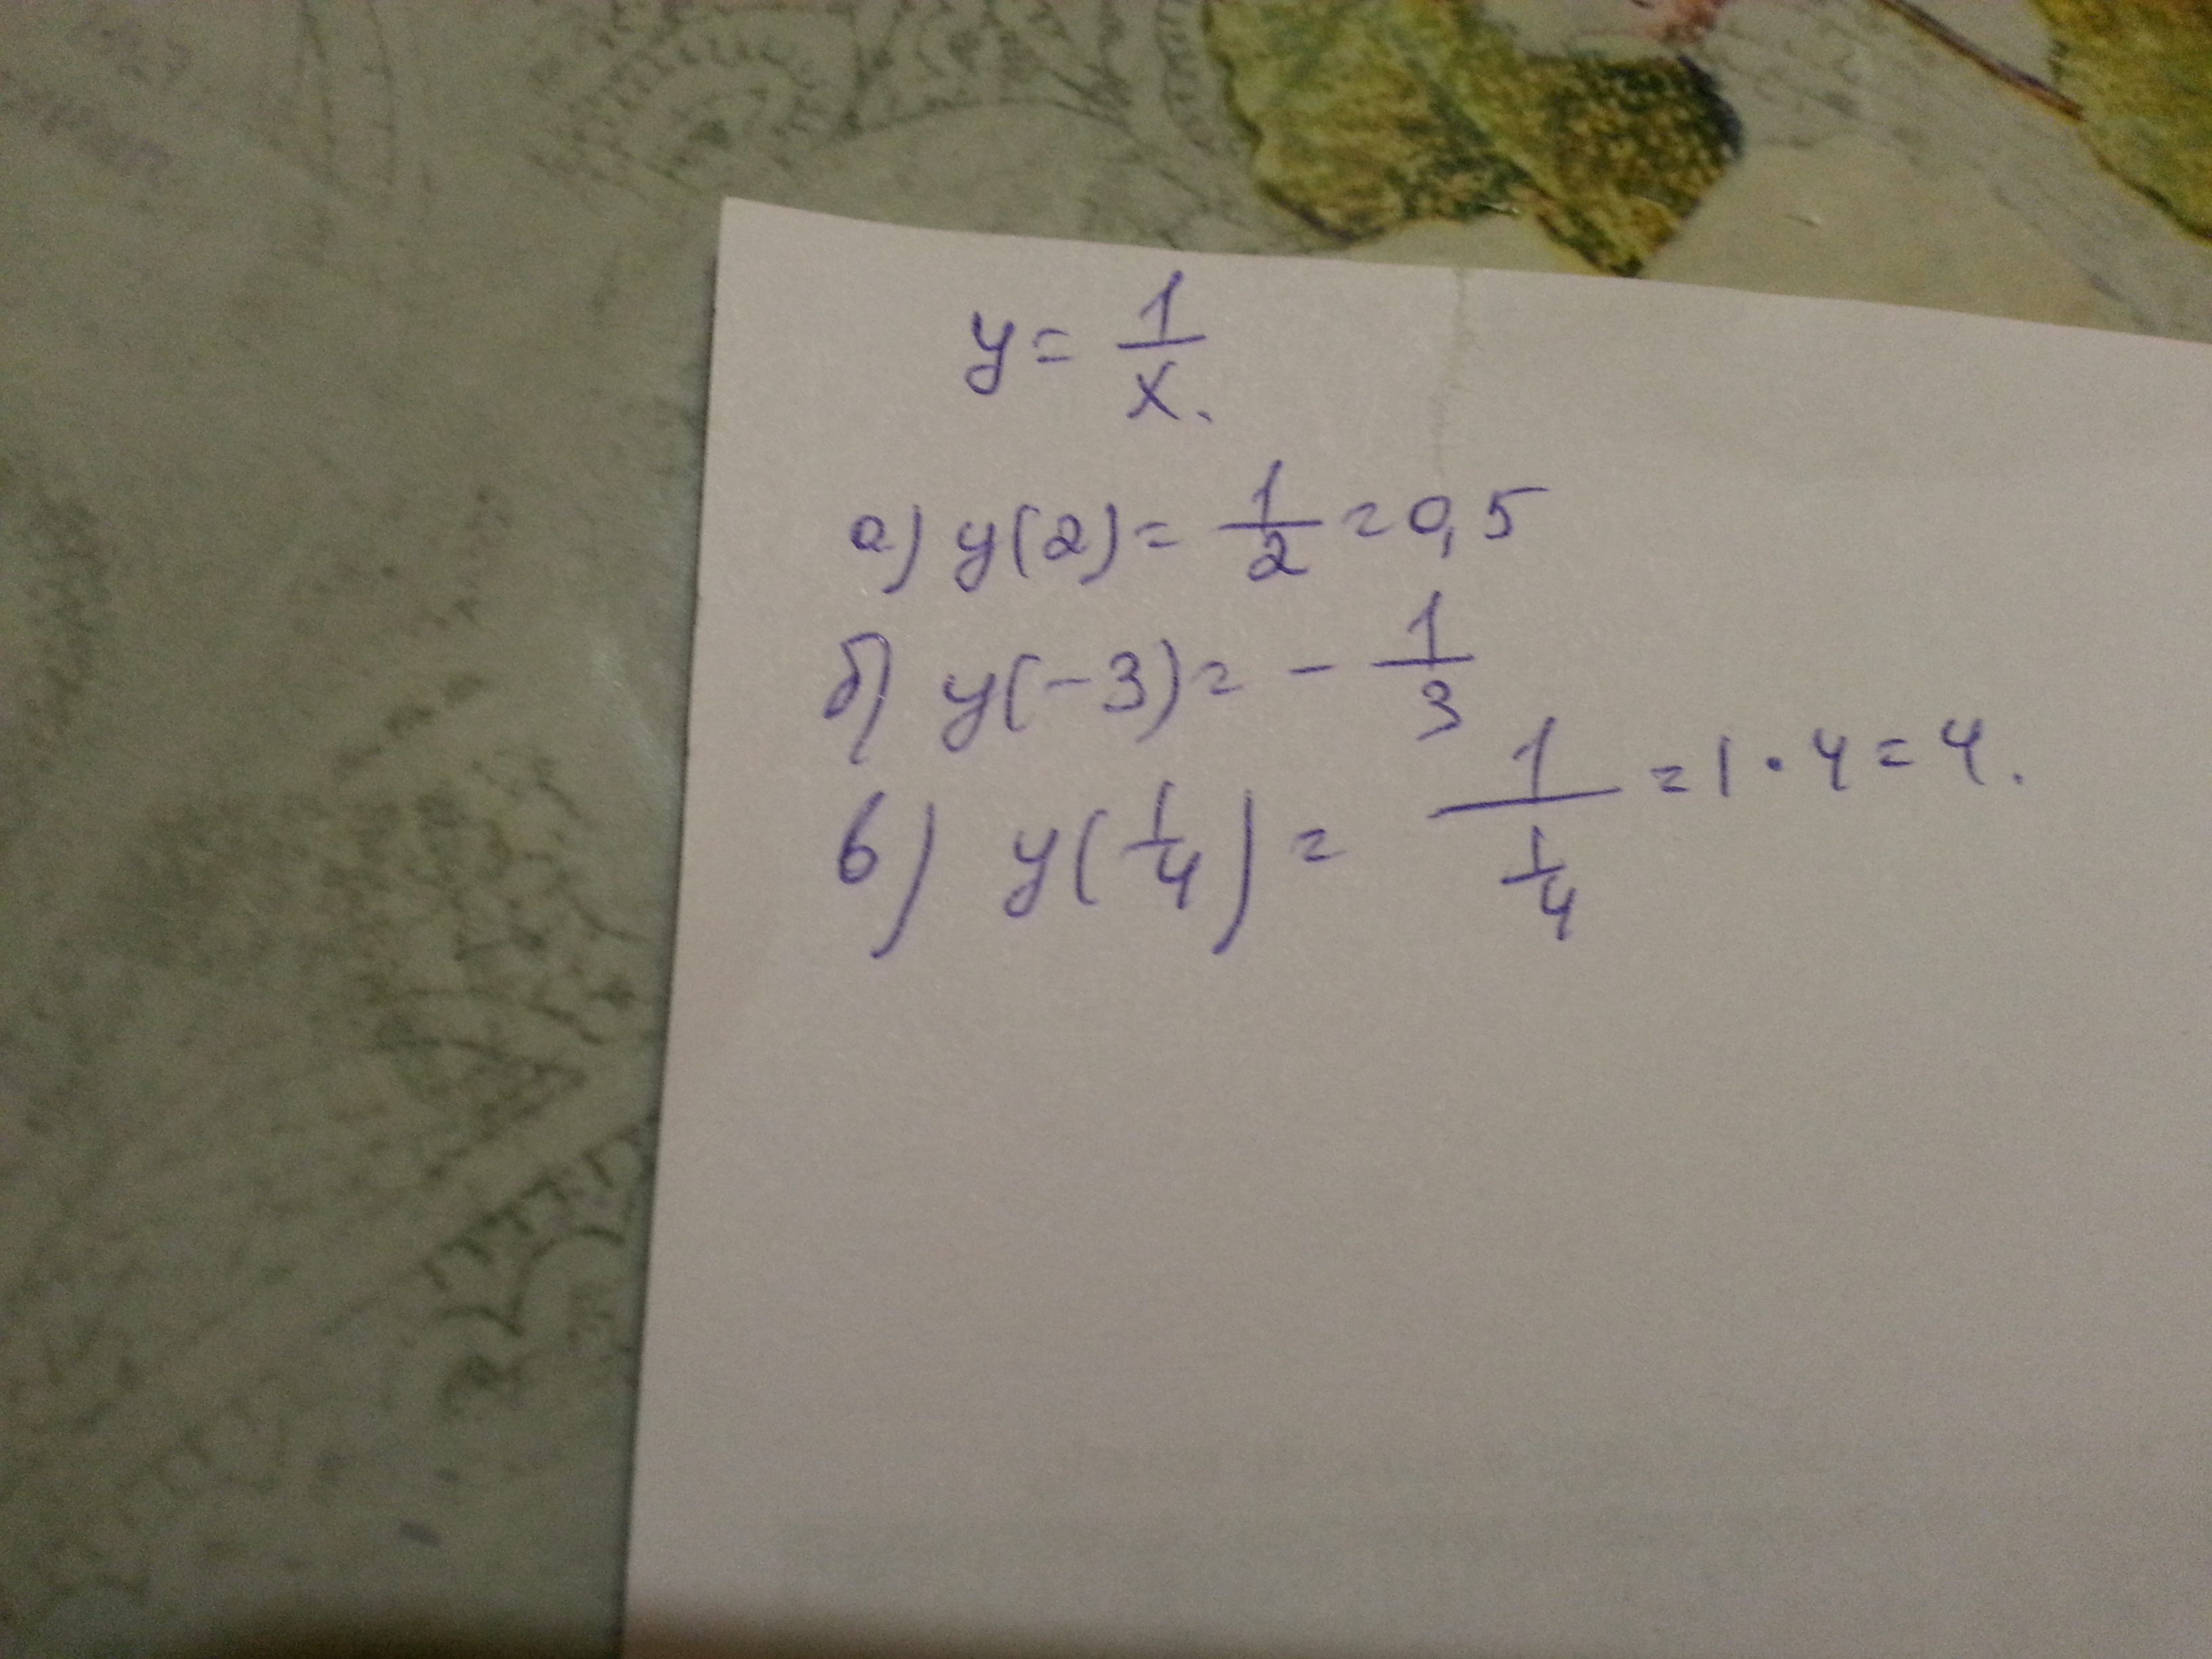 y = 1/x.
а) y(2) = 1/2 = 0,5
б) y(-3) = - 1/3
в) y(1/4) = 1/(1/4) = 1 · 4 = 4.